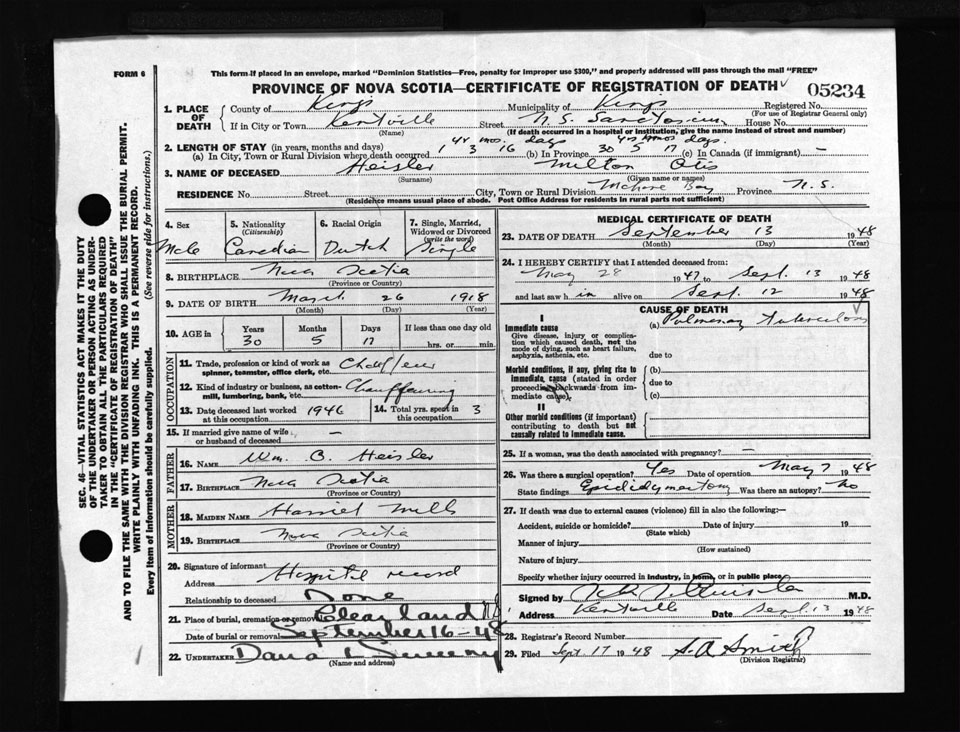 FORM 6
This form if placed in an envelope, marked "Dominion Statistics—Free, penalty for improper use $300," and properly addressed will pass through the mail "FREE"
PROVINCE OF NOVA SCOTIA—CERTIFICATE OF REGISTRATION OF DEATH
05234
1. PLACE OF DEATH County of Kings Municipality of Kings Registered No.
(For use of Registrar General only)
If in City or Town Kentville Street N.S. Sanatorium House No.
(Name) (If death occurred in a hospital or institution, give the name instead of street and number)
2. LENGTH OF STAY (in years, months and days) yr mos. days yrs mos days.
(a) In City, Town or Rural Division where death occurred 1 3 16 (b) In Province 30 5 17 (c) In Canada (if immigrant) —
3. NAME OF DECEASED Heisler Milton Otis
(Surname) (Given name or names)
RESIDENCE No. Street City, Town or Rural Division Mahone Bay Province N.S.
(Residence means usual place of abode. Post Office Address for residents in rural parts not sufficient)
4. Sex 5. Nationality (Citizenship) 6. Racial Origin 7. Single, Married, Widowed or Divorced (write the word)
Male Canadian Dutch Single
8. BIRTHPLACE Nova Scotia
(Province or Country)
9. DATE OF BIRTH March 26 1918
(Month) (Day) (Year)
10. AGE in Years Months Days If less than one day old
30 5 17 hrs. or min.
OCCUPATION
11. Trade, profession or kind of work as spinner, teamster, office clerk, etc. Chauffeur
12. Kind of industry or business, as cotton-mill, lumbering, bank, etc. Chauffeuring
13. Date deceased last worked at this occupation 1946 14. Total yrs. spent in this occupation 3
15. If married give name of wife or husband of deceased —
FATHER
16. NAME Wm. B. Heisler
17. BIRTHPLACE Nova Scotia
(Province or Country)
MOTHER
18. MAIDEN NAME Harriet Mills
19. BIRTHPLACE Nova Scotia
(Province or Country)
20. Signature of informant Hospital record
Address
Relationship to deceased None
21. Place of burial, cremation or removal Clearland
Date of burial or removal September 16-48
22. UNDERTAKER Dana L Sweeny
(Name and address)
MEDICAL CERTIFICATE OF DEATH
23. DATE OF DEATH September 13 1948
(Month) (Day) (Year)
24. I HEREBY CERTIFY that I attended deceased from:
May 28 1947 to Sept. 13 1948
and last saw him alive on Sept. 12 1948
CAUSE OF DEATH
I
Immediate cause (a) Pulmonary Tuberculosis
Give disease, injury or complication which caused death, not the mode of dying, such as heart failure, asphyxia, asthenia, etc.
due to
Morbid conditions, if any, giving rise to immediate cause (stated in order proceeding backwards from immediate cause).
(b)
due to
(c)
II
Other morbid conditions (if important) contributing to death but not causally related to immediate cause.
25. If a woman, was the death associated with pregnancy? —
26. Was there a surgical operation? Yes Date of operation May 7 1948
State findings Epididymectomy Was there an autopsy? No
27. If death was due to external causes (violence) fill in also the following:—
Accident, suicide or homicide? Date of injury 19
(State which)
Manner of injury
(How sustained)
Nature of injury
Specify whether injury occurred in industry, in home, or in public place
Signed by M.D.
Address Kentville Date Sept. 13 1948
28. Registrar's Record Number
29. Filed Sept 17 1948 S.A. Smith
(Division Registrar)
SEC. 46—VITAL STATISTICS ACT MAKES IT THE DUTY
OF THE UNDERTAKER OR PERSON ACTING AS UNDER-
TAKER TO OBTAIN ALL THE PARTICULARS REQUIRED
IN THE "CERTIFICATE OF REGISTRATION OF DEATH"
AND TO FILE THE SAME WITH THE DIVISION REGISTRAR WHO SHALL ISSUE THE BURIAL PERMIT.
WRITE PLAINLY WITH UNFADING INK. THIS IS A PERMANENT RECORD.
Every item of information should be carefully supplied. (See reverse side for instructions.)